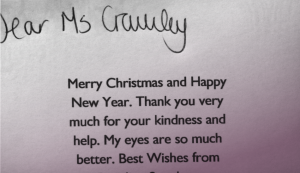 Dear Ms Crawley
Merry Christmas and Happy
New Year. Thank you very
much for your kindness and
help. My eyes are so much
better. Best Wishes from